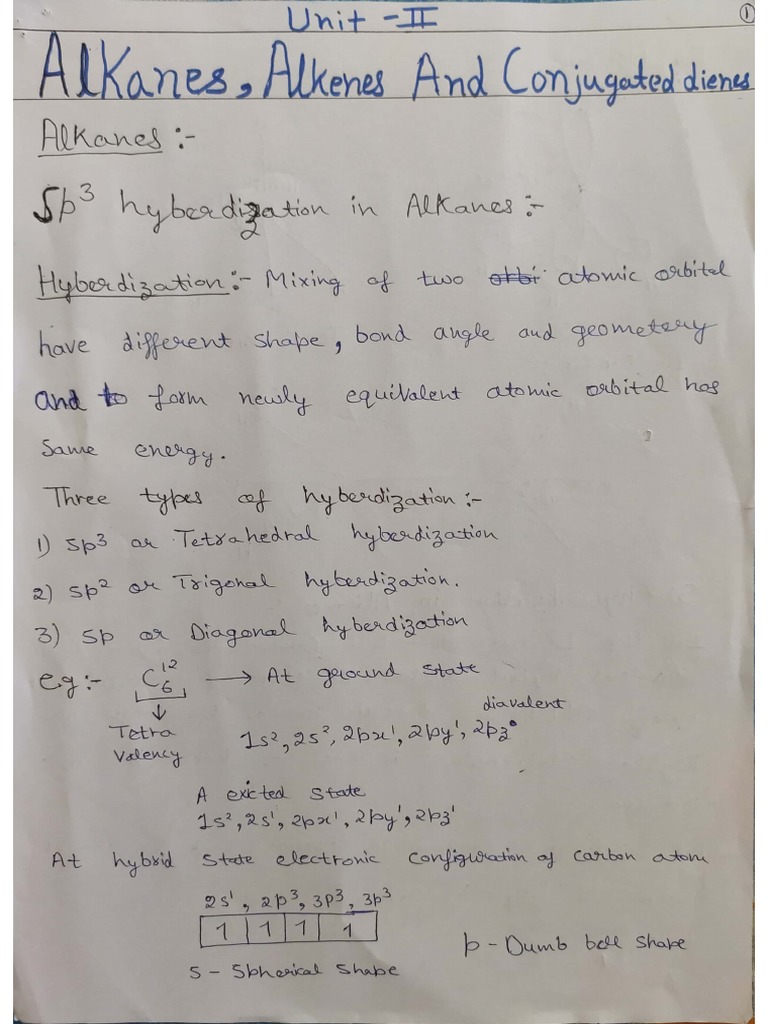 Unit - II
①
Alkanes, Alkenes And Conjugated dienes
Alkanes :-
Sp³ hyberdization in Alkanes :-
Hyberdization :- Mixing of two atomic orbital
have different shape, bond angle and geometery
and to form newly equivalent atomic orbital has
same energy.
Three types of hyberdization :-
1) sp³ or Tetrahedral hyberdization
2) sp² or Trigonal hyberdization.
3) sp or Diagonal hyberdization
eg :- C₆¹² → At ground state
diavalent
↓
Tetra
Valency
1s², 2s², 2px¹, 2py¹, 2pz⁰
A exicted state
1s², 2s¹, 2px¹, 2py¹, 2pz¹
At hybrid state electronic configuration of carbon atom
2s¹, 2p³, 3p³, 3p³
1 1 1 1
p - Dumb bell shape
s - Spherical shape